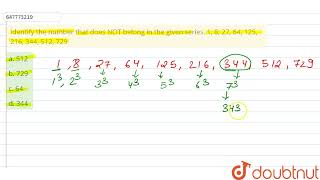 647773219
Identify the number that does NOT belong in the given series. 1, 8, 27, 64, 125,
216, 344, 512, 729
a. 512
b. 729
c. 64
d. 344
1 , 8 , 27 , 64 , 125 , 216 , 344 512 , 729
1³ , 2³ 3³ 4³ 5³ 6³ 7³
343
doubtnut